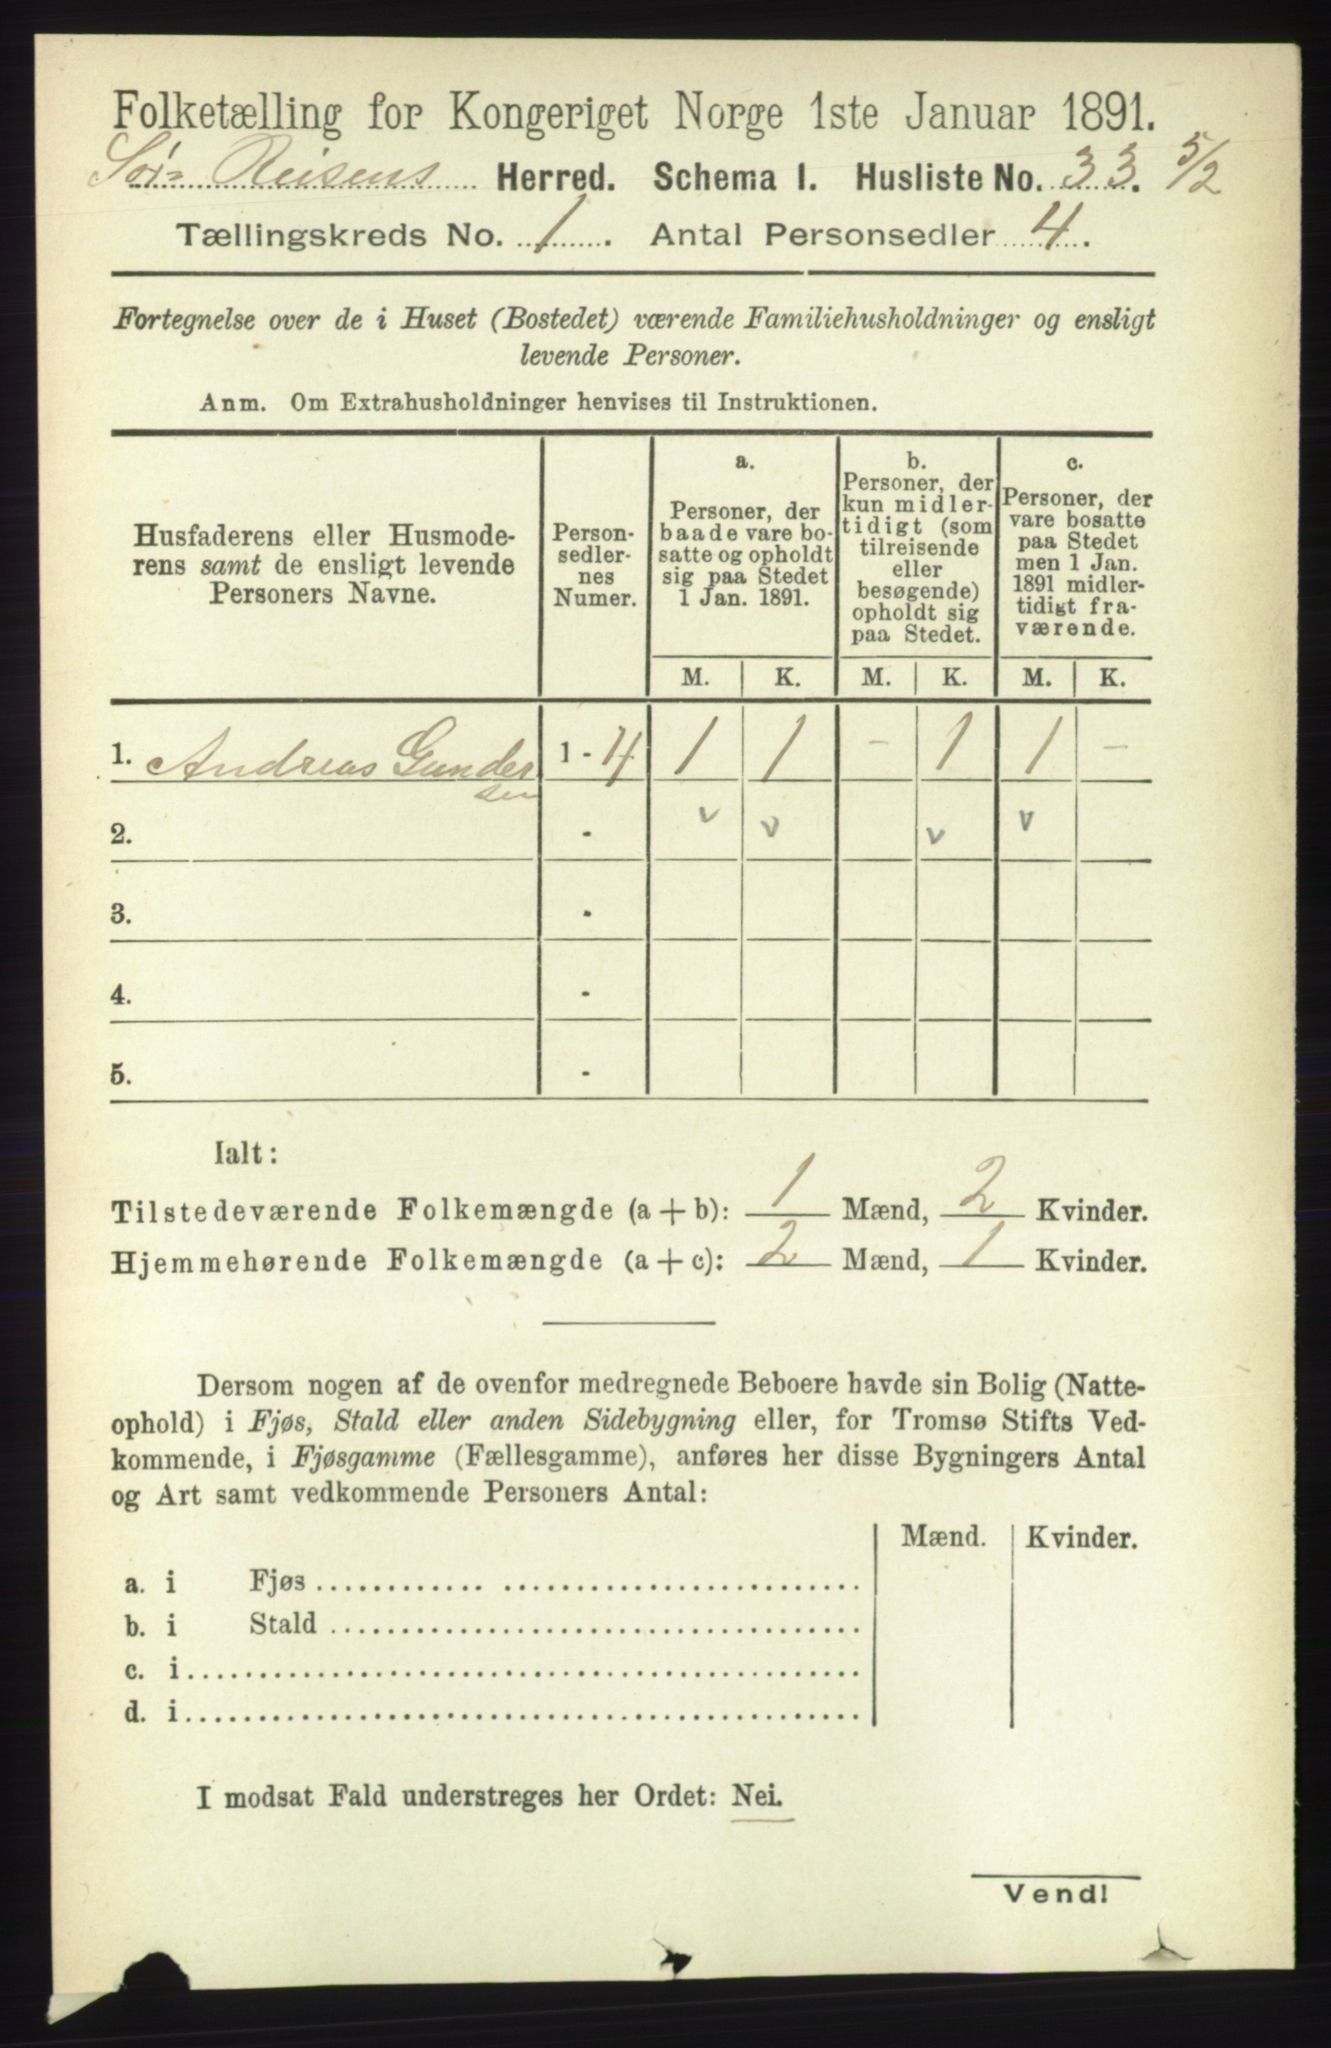 Folketælling for Kongeriget Norge 1ste Januar 1891.
Sör= Reisens Herred. Schema I. Husliste No. 33. 5/2
Tællingskreds No. 1. Antal Personsedler 4.
Fortegnelse over de i Huset (Bostedet) værende Familiehusholdninger og ensligt
levende Personer.
Anm. Om Extrahusholdninger henvises til Instruktionen.
Husfaderens eller Husmode-
rens samt de ensligt levende
Personers Navne.
Person-
sedler-
nes
Numer.
a.
Personer, der
baade vare bo-
satte og opholdt
sig paa Stedet
1 Jan. 1891.
b.
Personer, der
kun midler-
tidigt (som
tilreisende
eller
besøgende)
opholdt sig
paa Stedet.
c.
Personer, der
vare bosatte
paa Stedet
men 1 Jan.
1891 midler-
tidigt fra-
værende.
M. K. M. K. M. K.
1. Andreas Gunder 1 - 4 1 1 - 1 1 -
sen
2. - v v v v
3. -
4. -
5. -
Ialt:
Tilstedeværende Folkemængde (a + b): 1 Mænd, 2 Kvinder.
Hjemmehørende Folkemængde (a + c): 2 Mænd, 1 Kvinder.
Dersom nogen af de ovenfor medregnede Beboere havde sin Bolig (Natte-
ophold) i Fjøs, Stald eller anden Sidebygning eller, for Tromsø Stifts Ved-
kommende, i Fjøsgamme (Fællesgamme), anføres her disse Bygningers Antal
og Art samt vedkommende Personers Antal:
Mænd. Kvinder.
a. i Fjøs
b. i Stald
c. i
d. i
I modsat Fald understreges her Ordet: Nei.
Vend!